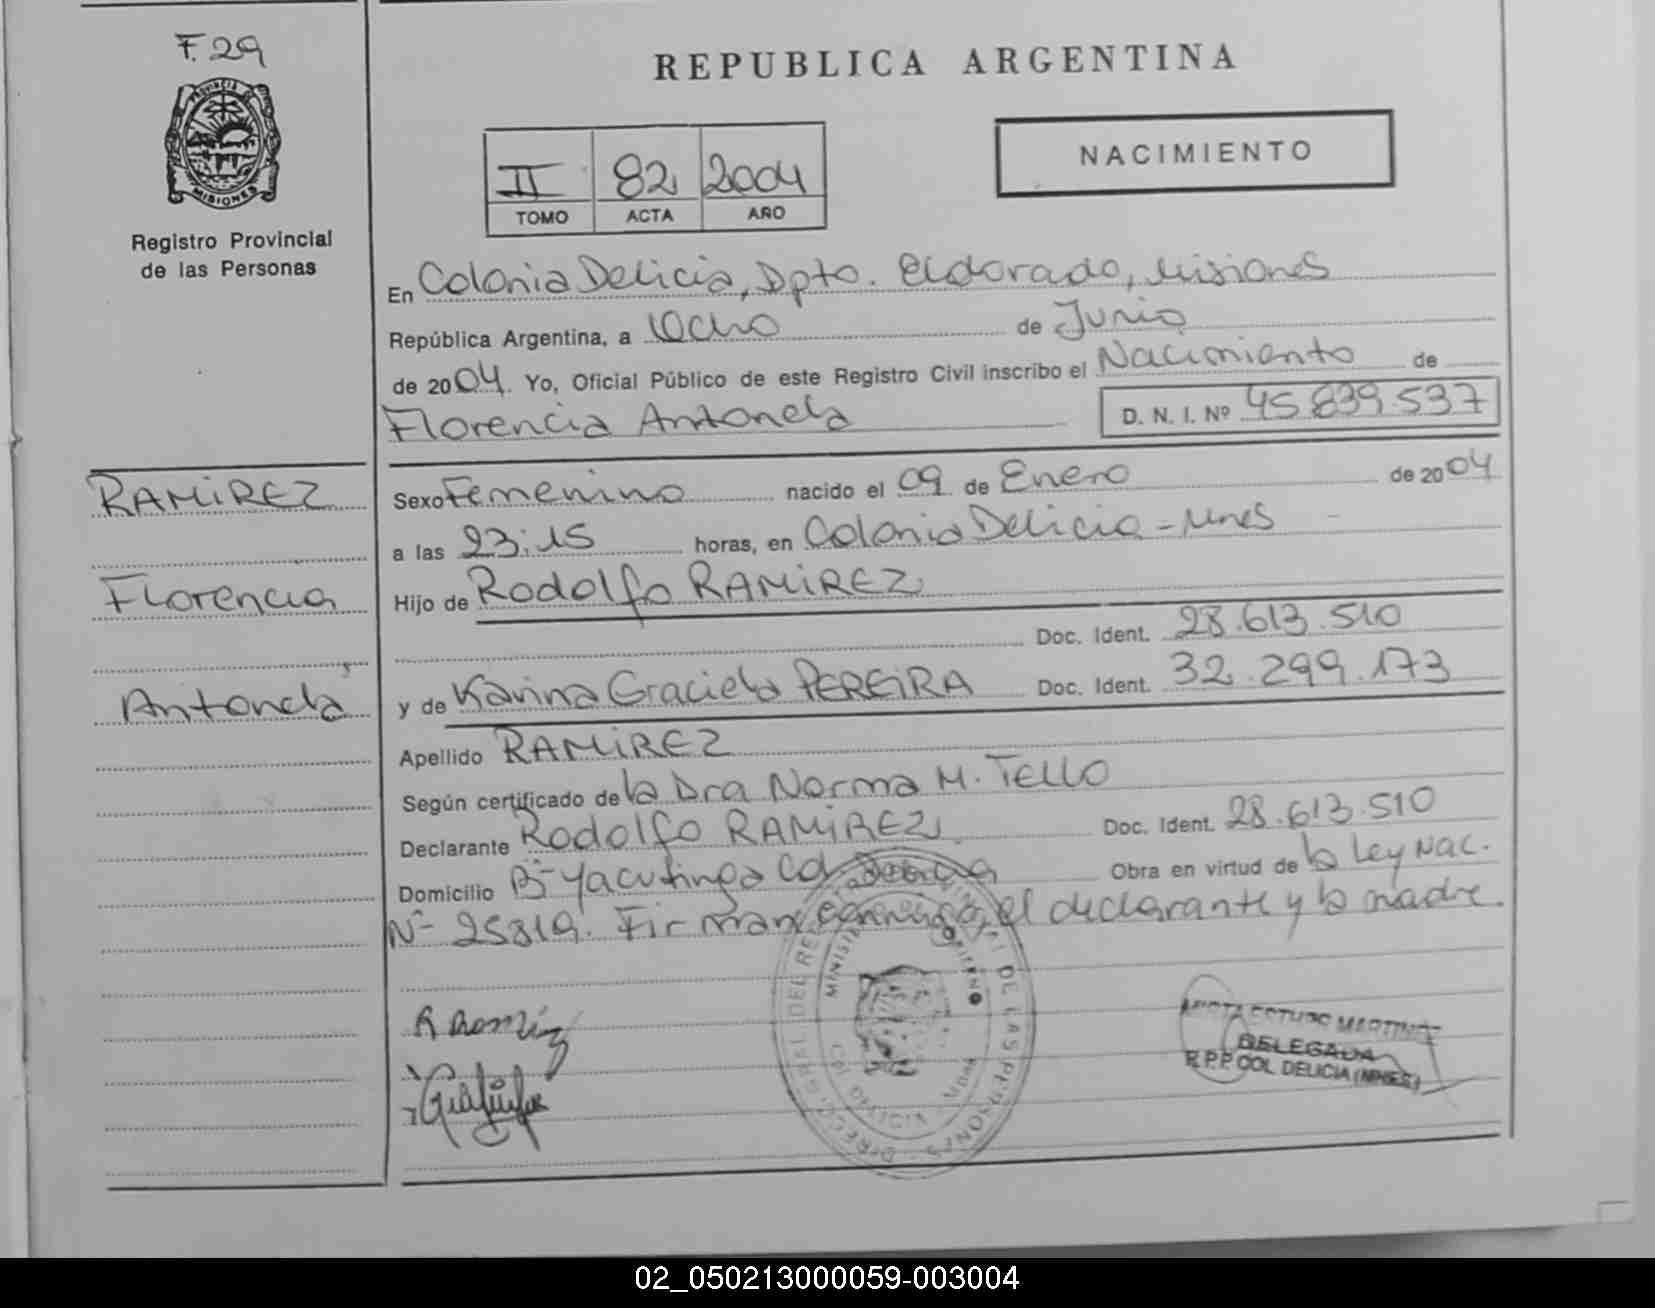 F. 29
PROVINCIA DE
MISIONES
Registro Provincial
de las Personas
REPUBLICA ARGENTINA
II 82 2004
TOMO ACTA AÑO
NACIMIENTO
En Colonia Delicia, Dpto. Eldorado, Misiones
República Argentina, a Ocho de Junio
de 2004. Yo, Oficial Público de este Registro Civil inscribo el Nacimiento de
Florencia Antonela D. N. I. Nº 45 839 537
RAMIREZ
Florencia
Antonela
Sexo Femenino nacido el 09 de Enero de 2004
a las 23:15 horas, en Colonia Delicia - Mnes -
Hijo de Rodolfo RAMIREZ
Doc. Ident. 28.613.510
y de Karina Graciela PEREIRA Doc. Ident. 32.299.173
Apellido RAMIREZ
Según certificado de la Dra Norma M. Tello
Declarante Rodolfo RAMIREZ Doc. Ident. 28.613.510
Domicilio Bº Yacutinga Col Delicia Obra en virtud de la Ley Nac.
Nº 25819. Firman conmigo, el declarante y la madre.
R Ramirez
DE LAS PERSONAS
DELEGADA
R.P.P COL DELICIA (MNES)
02_050213000059-003004